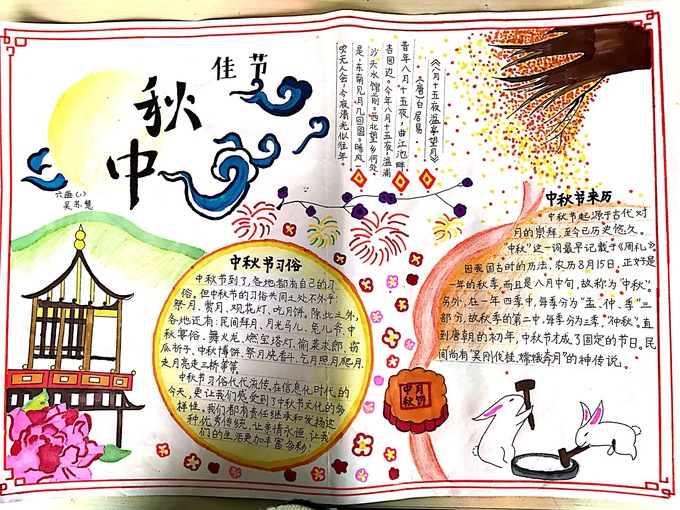 佳节
中秋
六班(1)
吴苏慧
《八月十五夜湓亭望月》
(唐)白居易
昔年八月十五夜,曲江池畔
杏园边。今年八月十五夜,湓浦
沙头水馆前。西北望乡何处
是,东南见月几回圆。昨风一
吹无人会,今夜清光似往年。
中秋节习俗
中秋节到了,各地都有自己的习
俗。但中秋节的习俗共同之处不外乎:
祭月、赏月、观花灯、吃月饼。除此之外,
各地还有:民间拜月、月光马儿、兔儿爷、中
秋宴俗、舞火龙、燃宝塔灯、偷菜求郎、窃
瓜祈子、中秋博饼、祭月烧香斗、乞月照月爬月、
走月亮走三桥等等。
中秋节习俗代代流传,在信息化时代的
今天,更让我们感受到了中秋节文化的多
样性。我们都有责任继承和发扬这
种优秀传统,让亲情永恒,让我
们的生活更加丰富多彩!
中秋节来历
中秋节起源于古代对
月的崇拜,至今已历史悠久。
“中秋”这一词最早记载于《周礼》。
因我国古时的历法,农历8月15日,正好是
一年的秋季,而且是八月中旬,故称为“中秋”。
另外,在一年四季中,每季分为“孟、仲、季”三
部分,故秋季的第二中,每季分为三季,“仲秋”。直
到唐朝的初年,中秋节才成了固定的节日。民
间尚有“吴刚伐桂、嫦娥奔月”的神传说。
中月
秋饼